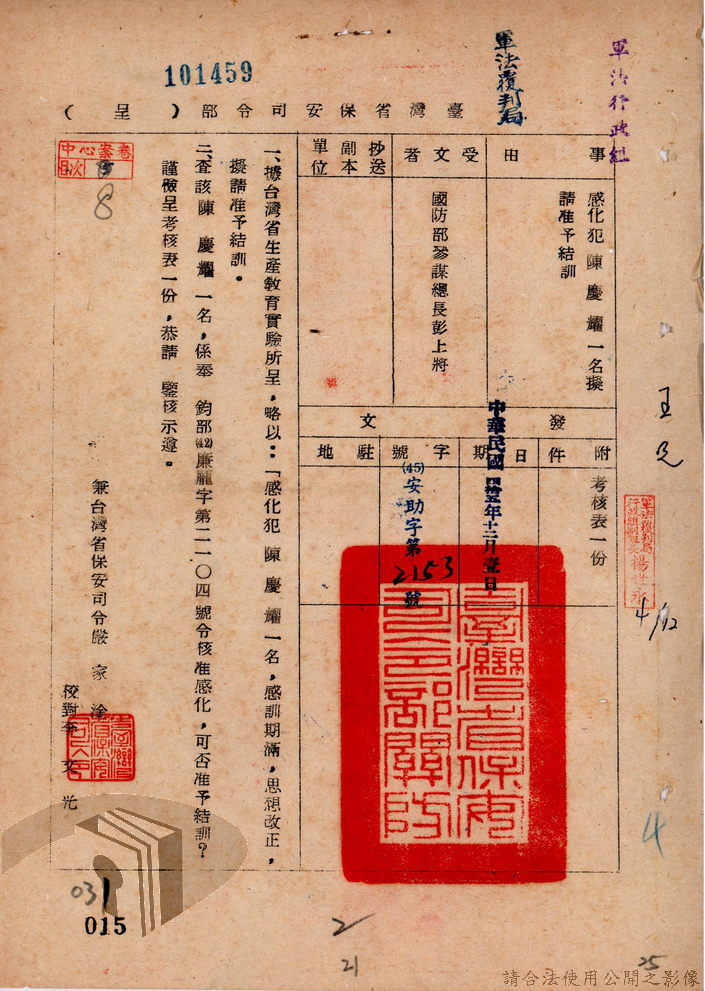 101459
軍法覆判局
軍法行政組
臺灣省保安司令部（呈）
事由
感化犯陳慶耀一名擬
請准予結訓
受文者
國防部參謀總長彭上將
抄送副本單位
發文
附件
考核表一份
日期
中華民國肆拾五年十二月壹日
字號
(45)安助字第2153號
駐地
臺灣省保安司令部關防
一、據台灣省生產教育實驗所呈，略以：「感化犯陳慶耀一名，感訓期滿，思想改正，
擬請准予結訓。
二、查該陳慶耀一名，係奉　鈞部(42)廉龐字第二一一〇四號令核准感化，可否准予結訓？
謹檢呈考核表一份，恭請　鑒核示遵。
兼台灣省保安司令嚴家淦
校對李文光
中心案卷
目次
8
軍法覆判局
行政組副組長楊世永
4/12
4
031
015
2
21
25
請合法使用公開之影像